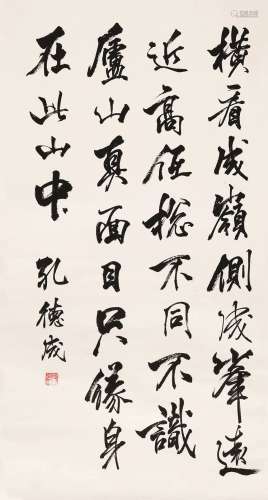 橫看成嶺側成峯遠
近高低總不同不識
廬山真面目只緣身
在此山中 孔德成